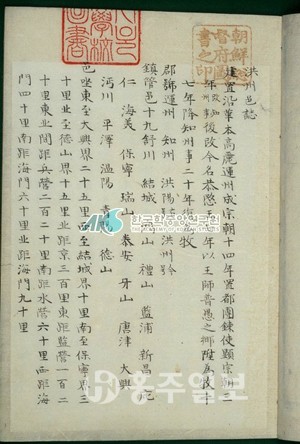 朝鮮總督府圖書之印
洪州邑誌
建置沿革本高麗運州成宗朝十四年置都團練使顯宗朝
年州事後改今名恭愍年以王師普愚之鄕陞爲牧十
七年降知州事二十年牧
郡號運州 知州 洪陽 洪州
鎭管邑十九舒川 結城 山 禮山 藍浦 新昌
仁 海美 保寧 瑞山 泰安 牙山 唐津 大興
沔川 平澤 溫陽 靑 德山
邑坐東至大興界二十五里西至結城界十里南至保寧界三
十里北至德山界十五里北距京三百里東距監營一百二
十里東北間距兵營二百二十里南距水營六十里西距海
門四十里南距海門六十里北距海門九十里
한국학중앙연구원
홍주일보